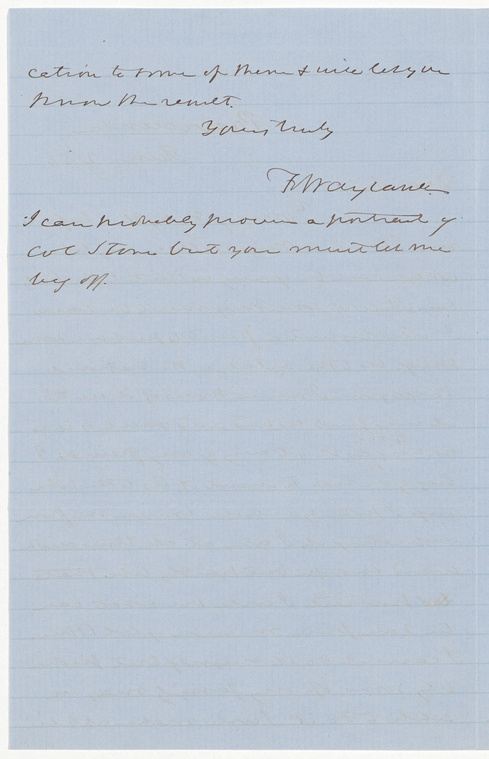 cation to some of them & will let you
know the result.
Yours truly
F Wayland
I can probably procure a portrait of
Col Stone but you must let me
beg off.